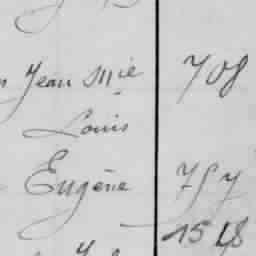 Jean Mie 708
Louis
Eugène 757
1518